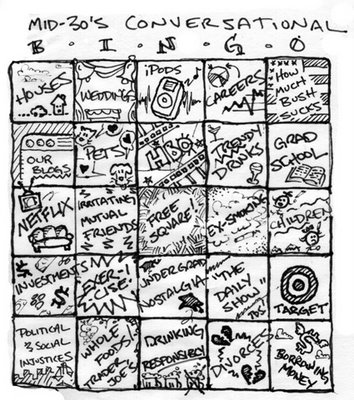 MID-30'S CONVERSATIONAL
B·I·N·G·O
HOUSES
WEDDINGS
iPODS
CAREERS
HOW
MUCH
BUSH
SUCKS
OUR
BLOG
PETS!
HBO
TRENDY
DRINKS
GRAD
SCHOOL
NETFLIX
IRRITATING
MUTUAL
FRIENDS
FREE
SQUARE!
EX-SMOKING
CHILDREN
INVESTMENTS
EXER-
CISE!
UNDERGRAD
NOSTALGIA
"THE
DAILY
SHOW"
TARGET
POLITICAL
& SOCIAL
INJUSTICES
WHOLE
FOODS/
TRADER
JOE'S
DRINKING
RESPONSIBLY
DIVORCE
BORROWING
MONEY